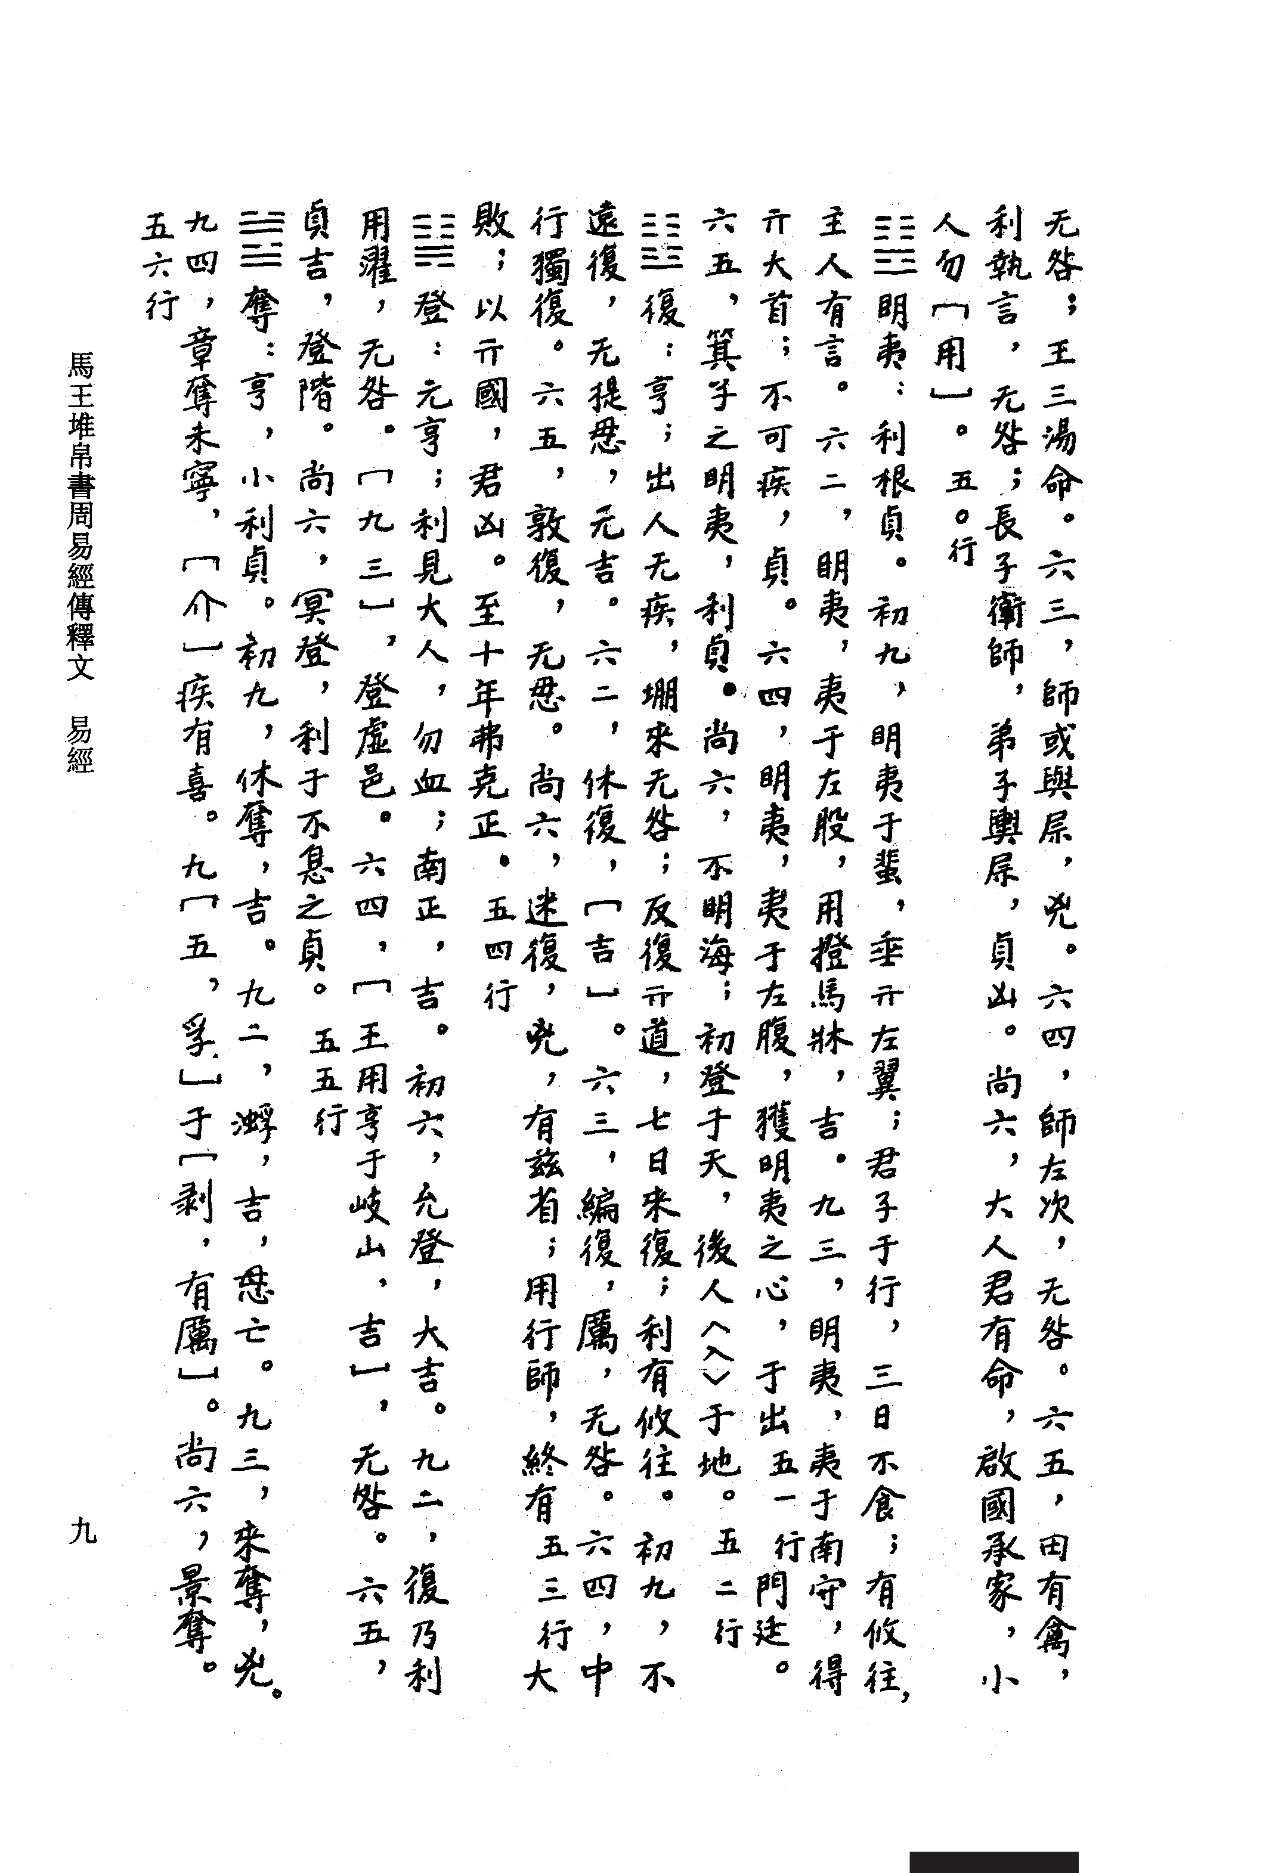 无咎；王三湯命。六三，師或與㞕，兇。六四，師左次，无咎。六五，田有禽，
利執言，无咎；長子衛師，弟子輿㞕，貞凶。尚六，大人君有命，啟國承家，小
人勿［用］。五〇行
䷣明夷：利根貞。初九，明夷于蜚，垂亓左翼；君子于行，三日不食；有攸往，
主人有言。六二，明夷，夷于左股，用撜馬牀，吉。九三，明夷，夷于南守，得
亓大首；不可疾，貞。六四，明夷，夷于左腹，獲明夷之心，于出五一行門廷。
六五，箕子之明夷，利貞。尚六，不明海；初登于天，後人〈入〉于地。五二行
䷗復：亨；出人无疾，堋來无咎；反復亓道，七日來復；利有攸往。初九，不
遠復，无提悬，元吉。六二，休復，［吉］。六三，編復，厲，无咎。六四，中
行獨復。六五，敦復，无悬。尚六，迷復，兇，有茲省；用行師，終有五三行大
敗；以亓國，君凶。至十年弗克正。五四行
䷭登：元亨；利見大人，勿血；南正，吉。初六，允登，大吉。九二，復乃利
用濯，无咎。［九三］，登虛邑。六四，［王用亨于岐山，吉］，无咎。六五，
貞吉，登階。尚六，冥登，利于不息之貞。五五行
䷹奪：亨，小利貞。初九，休奪，吉。九二，𬉼，吉，悬亡。九三，來奪，兇。
九四，章奪未寧，［介］疾有喜。九［五，孚］于［剥，有厲］。尚六，景奪。
五六行
馬王堆帛書周易經傳釋文　易經
九